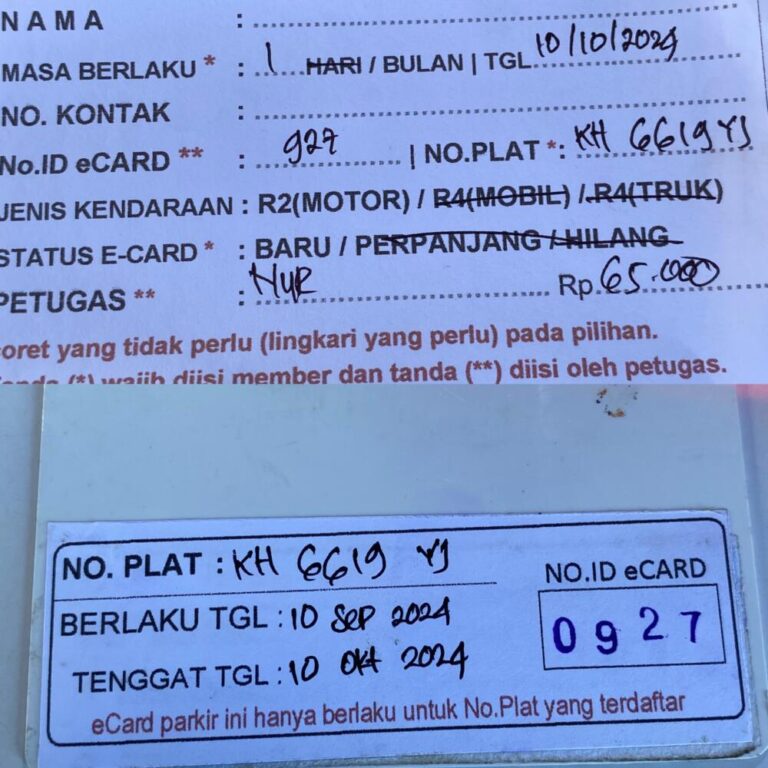 NAMA :
MASA BERLAKU * : 1 HARI / BULAN | TGL 10/10/2024
NO. KONTAK :
No.ID eCARD ** : 927 | NO.PLAT *: KH 6619 YJ
JENIS KENDARAAN : R2(MOTOR) / R4(MOBIL) / R4(TRUK)
STATUS E-CARD * : BARU / PERPANJANG / HILANG
PETUGAS ** : NUR Rp. 65.000
oret yang tidak perlu (lingkari yang perlu) pada pilihan.
anda (*) wajib diisi member dan tanda (**) diisi oleh petugas.
NO. PLAT : KH 6619 YJ
NO.ID eCARD
BERLAKU TGL : 10 Sep 2024
0927
TENGGAT TGL : 10 Okt 2024
eCard parkir ini hanya berlaku untuk No.Plat yang terdaftar